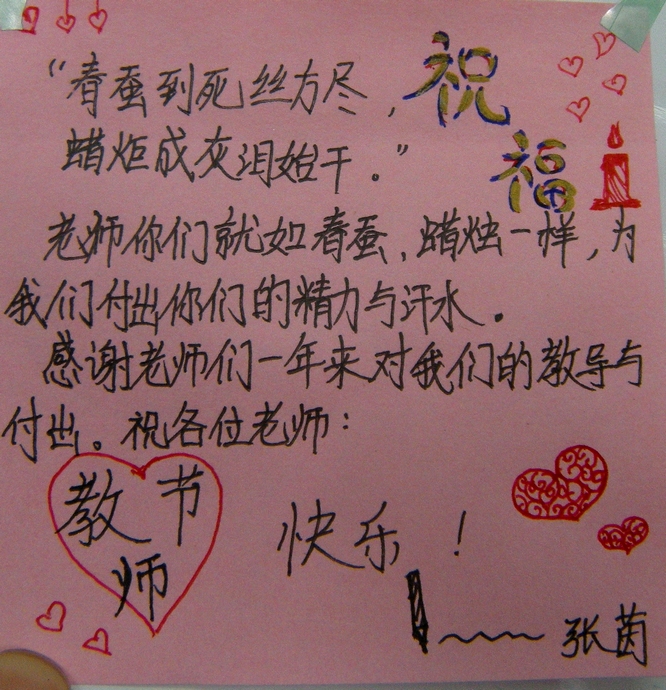 “春蚕到死丝方尽，
蜡炬成灰泪始干。”
祝
福
老师你们就如春蚕，蜡烛一样，为
我们付出你们的精力与汗水。
感谢老师们一年来对我们的教导与
付出。祝各位老师：
教节
师
快乐！
张茵